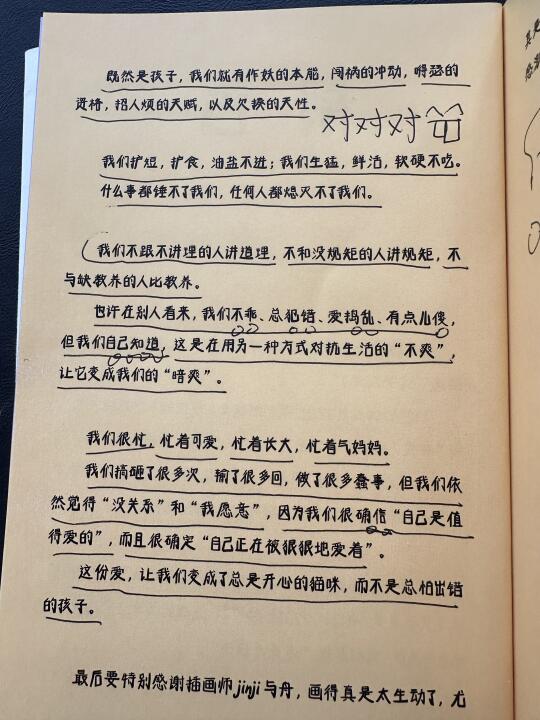 既然是孩子，我们就有作妖的本能，闯祸的冲动，嘚瑟的
资格，招人烦的天赋，以及欠揍的天性。
对对对
我们护短，护食，油盐不进；我们生猛，鲜活，软硬不吃。
什么事都锤不了我们，任何人都熄灭不了我们。
我们不跟不讲理的人讲道理，不和没规矩的人讲规矩，不
与缺教养的人比教养。
也许在别人看来，我们不乖、总犯错、爱捣乱、有点儿傻，
但我们自己知道，这是在用另一种方式对抗生活的“不爽”，
让它变成我们的“暗爽”。
我们很忙，忙着可爱，忙着长大，忙着气妈妈。
我们搞砸了很多次，输了很多回，做了很多蠢事，但我们依
然觉得“没关系”和“我愿意”，因为我们很确信“自己是值
得爱的”，而且很确定“自己正在被狠狠地爱着”。
这份爱，让我们变成了总是开心的猫咪，而不是总怕出错
的孩子。
最后要特别感谢插画师jinji与舟，画得真是太生动了，尤